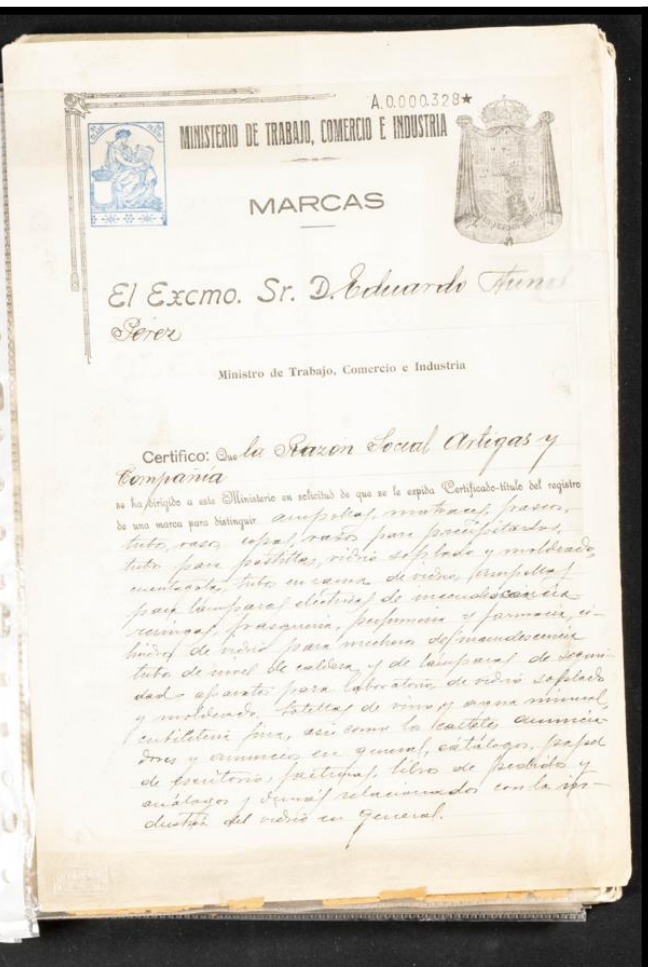 A.0.000.328★
MINISTERIO DE TRABAJO, COMERCIO E INDUSTRIA
MARCAS
El Excmo. Sr. D. Eduardo
Pérez
Ministro de Trabajo, Comercio e Industria
Certifico: Que la Razón Social Artigas y
Compañía
se ha dirigido a este Ministerio en solicitud de que se le expida Certificado-título del registro
de una marca para distinguir ampollas, matraces, frascos,
tubos, vasos, copas, vasos para precipitados,
tubos para pastillas, vidrio soplado y moldeado,
cuentagotas, tubos en rama de vidrio, ampollas
para lamparas electricas de incandescencia
geringas, frasqueria, perfumeria y farmacia, ci-
lindros de vidrio para mecheros de incandescencia
tubos de nivel de caldera y de lamparas de seguri-
dad aparatos para laboratorio, de vidrio soplado
y moldeado, botellas de vino y agua mineral,
cubileteria fina, asi como los carteles anuncia-
dores y anuncios en general, catálogos, papel
de escritorio, facturas, libros de pedidos y
análogos y demás relacionados con la in-
dustria del vidrio en general.